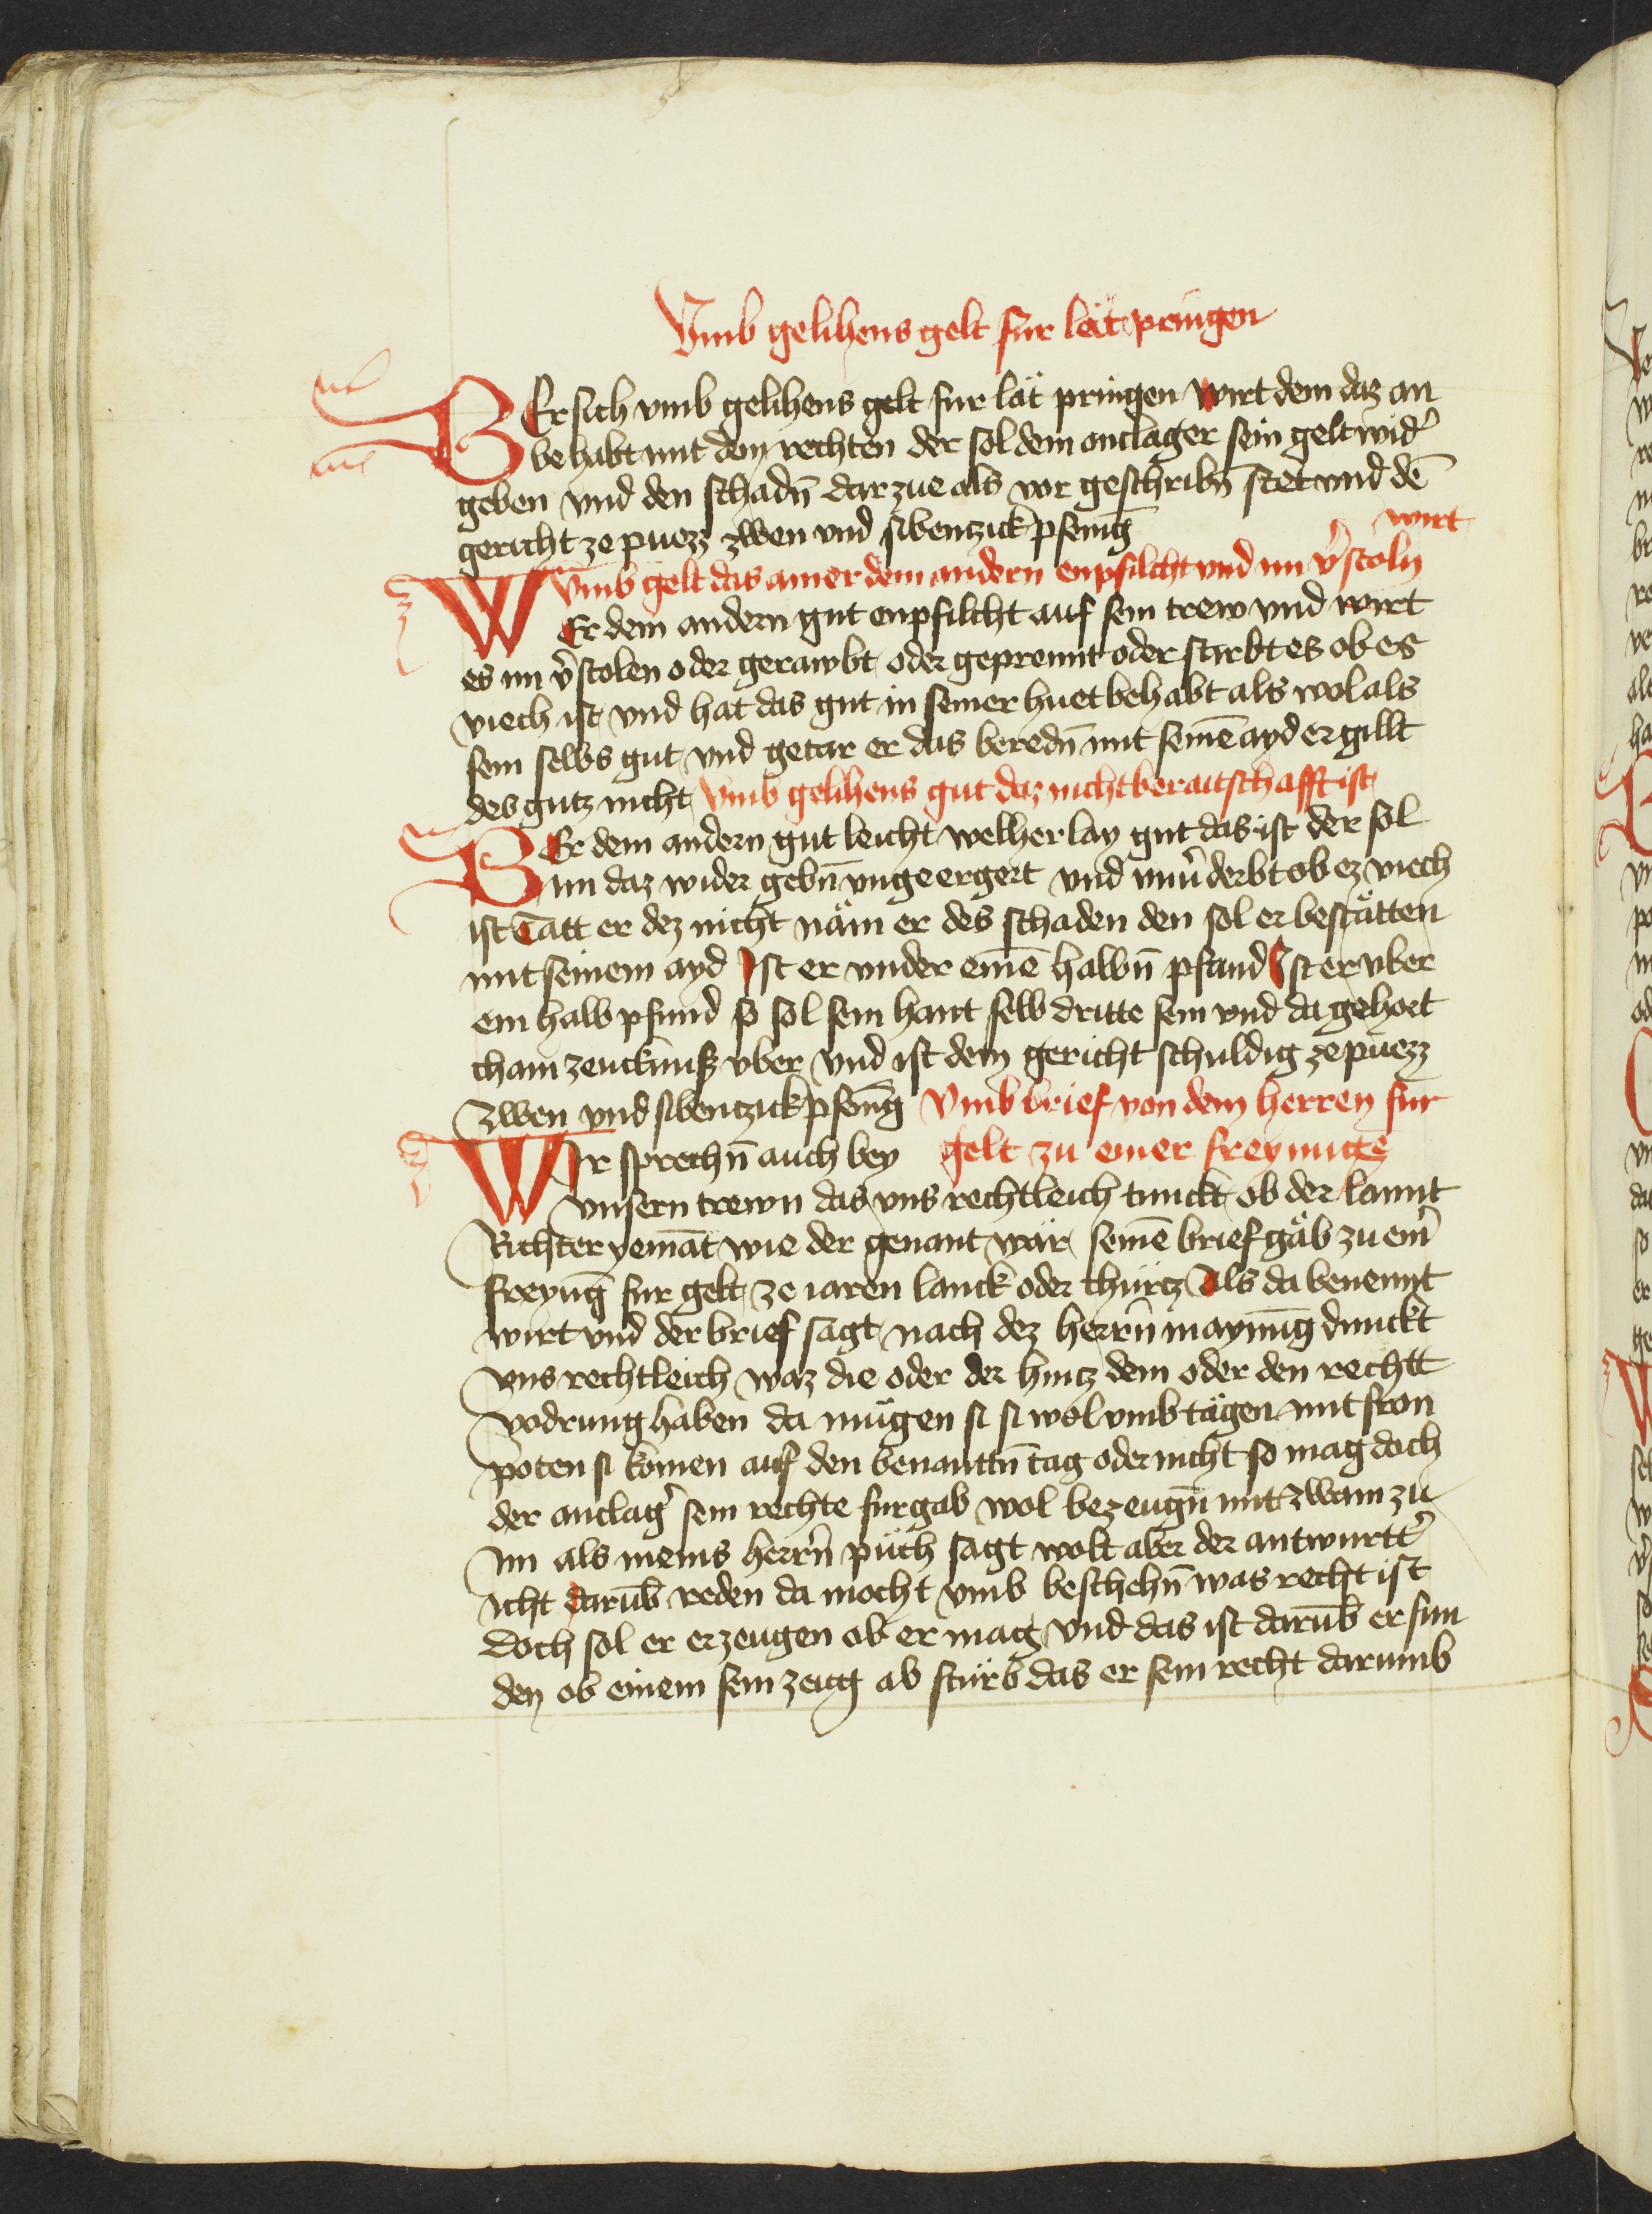 Vmb gelihens gelt fur lät pringen
WEr sich vmb gelihens gelt fur lät pringen wirt dem daz an
behabt mit dem rechten der sol dem anclager sein gelt wid̉
geben vnd den schadn̄ dar zue als vor geschribn̄ stet vnd dē
gericht ze puezz zwen vnd sibentzick pfenīg
wirt
Vmb gelt das ainer dem andern enpfilcht vnd im v̉stoln
WEr dem andern gut enpfilcht auf sein trew vnd wirt
es im v̉stolen oder gerawbt oder geprennt oder stirbt es ob es
viech ist vnd hat das gut in seiner huet behabt als wol als
sein selbs gut vnd getar er das beredn̄ mit seinē ayd er gillt
des gutz nicht Vmb gelihens gut daz nicht beraitschafft ist
WEr dem andern gut leicht welherlay gut das ist der sol
im daz wider gebn̄ vngeergert vnd vnv̉derbt ob ez viech
ist Tätt er dez nicht näm er des schaden den sol er bestätten
mit seinem ayd Ist er vnder einē halbn̄ pfund Ist er vber
ein halb pfund so sol sein hant selb dritte sein vnd da gehort
chain zeucknuß vber vnd ist dem gericht schuldig ze puezz
zwen vnd sibentzick pfenīg Vmb brief von dem herren fur
WIr sprechn̄ auch bey gelt zu einer freyung
vnsern trewn das vns rechtleich tunckt ob der lannt
Richter yemāt wie der genant wär seinē brief gäb zu ein̉
freyūg fur gelt ze iaren lanck oder churtz Als da benennt
wirt vnd der brief sagt nach dez herrn̄ maynūg dunckt
vns rechtleich waz die oder der hintz dem oder den rechtt
vodrung haben da mügen si si wol vmb tägen mit fron
poten si komen auf den benanttn̄ tag oder nicht so mag doch
der anclag̉ sein rechte furgab wol bezeugn̄ mit zwain zu
im als meins herrn̄ püch sagt wolt aber der antwurtt̉
icht darūb reden da mocht vmb beschehn̄ was recht ist
doch sol er erzeugen ob er mag vnd das ist darūb erfun
den ob einem sein zeug ab stürb das er sein recht darumb